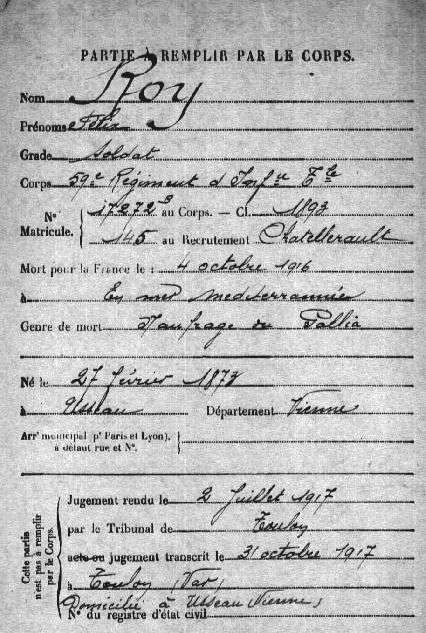 PARTIE À REMPLIR PAR LE CORPS.
Nom Roy
Prénoms Félix
Grade Soldat
Corps 59e Régiment d'Infrie Tle
N° Matricule. 17272 au Corps. — Cl. 1893
145 au Recrutement Chatellerault
Mort pour la France le : 4 octobre 1916
à En mer mediterrannée
Genre de mort Naufrage du Gallia
Né le 27 février 1873
à Usseau Département Vienne
Arrt municipal (pr Paris et Lyon),
à défaut rue et N°.
Cette partie n'est pas à remplir par le Corps.
Jugement rendu le 2 Juillet 1917
par le Tribunal de Toulon
acte ou jugement transcrit le 31 octobre 1917
à Toulon (Var)
Domicilié à Usseau (Vienne)
N° du registre d'état civil